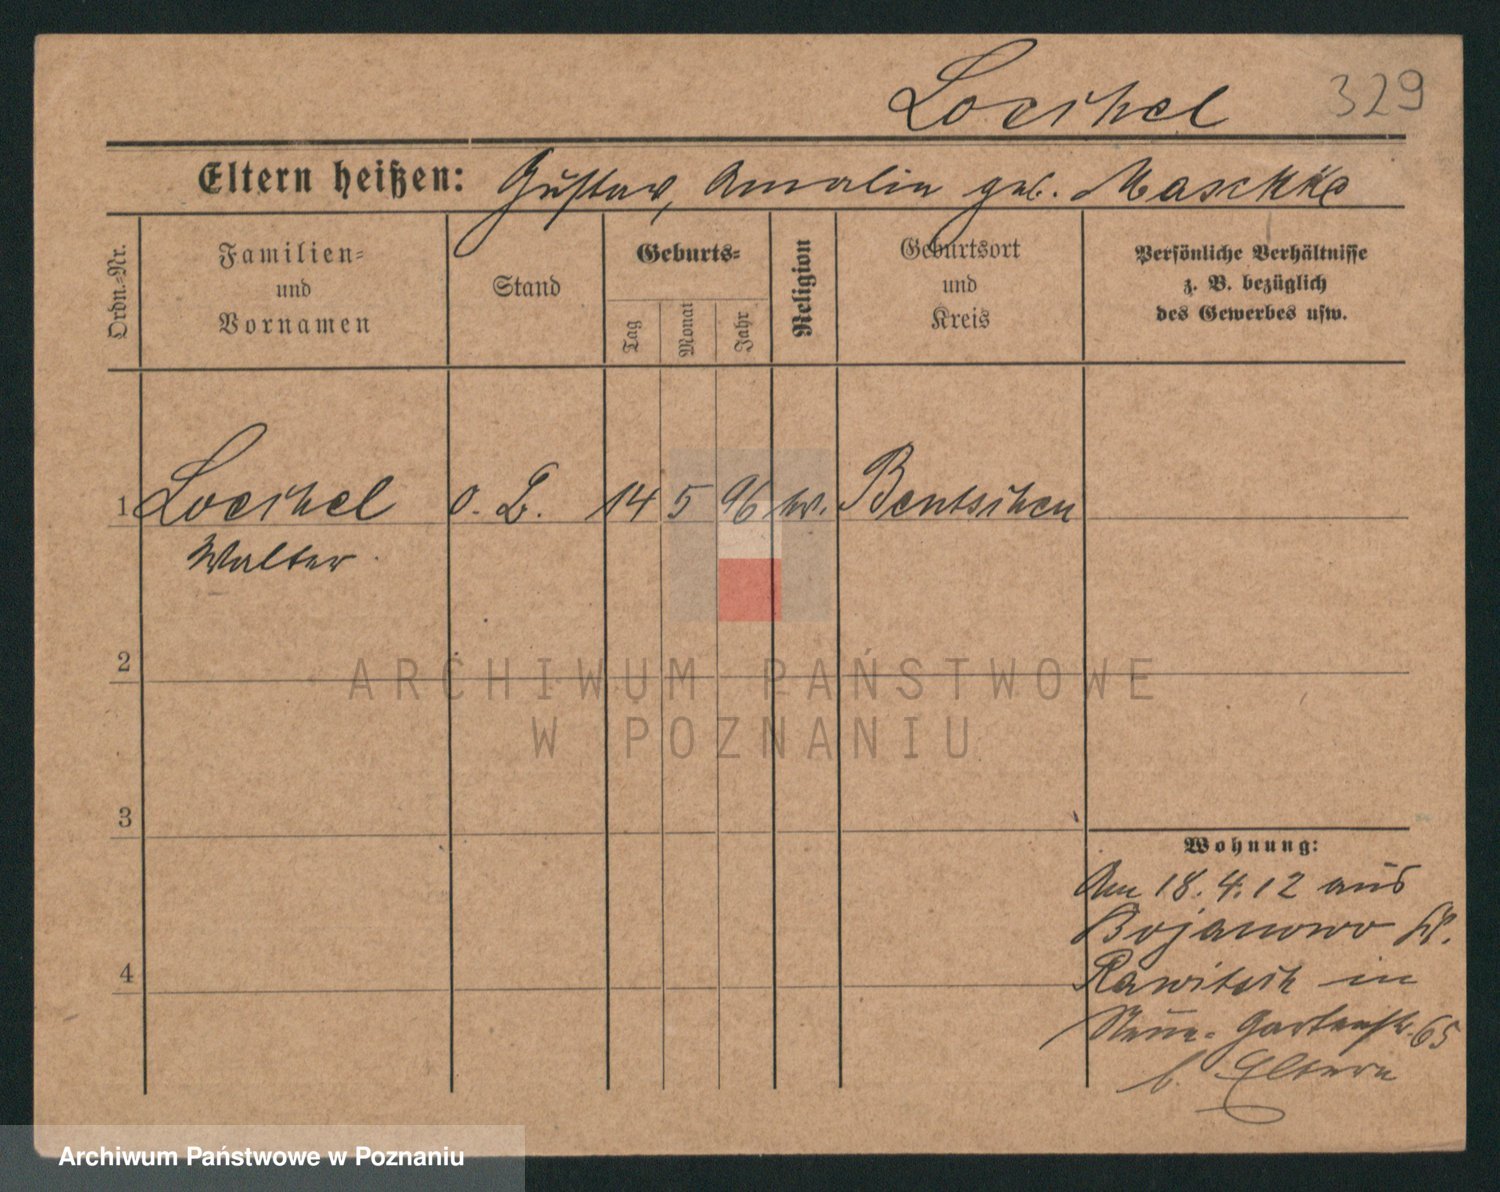 Loechel 329
Eltern heißen: Gustav, Amalie geb. Maschke
Ordn.=Nr.
Familien=
und
Vornamen
Stand
Geburts=
Tag
Monat
Jahr
Religion
Geburtsort
und
Kreis
Persönliche Verhältnisse
z. B. bezüglich
des Gewerbes usw.
1 Loechel o. B. 14 5 96 Bentschen
Walter
2
ARCHIWUM PAŃSTWOWE
W POZNANIU
3
Wohnung:
Am 18.4.12 aus
Bojanowo Kr.
4
Rawitsch in
Neue Gartenstr. 65
b. Eltern
Archiwum Państwowe w Poznaniu